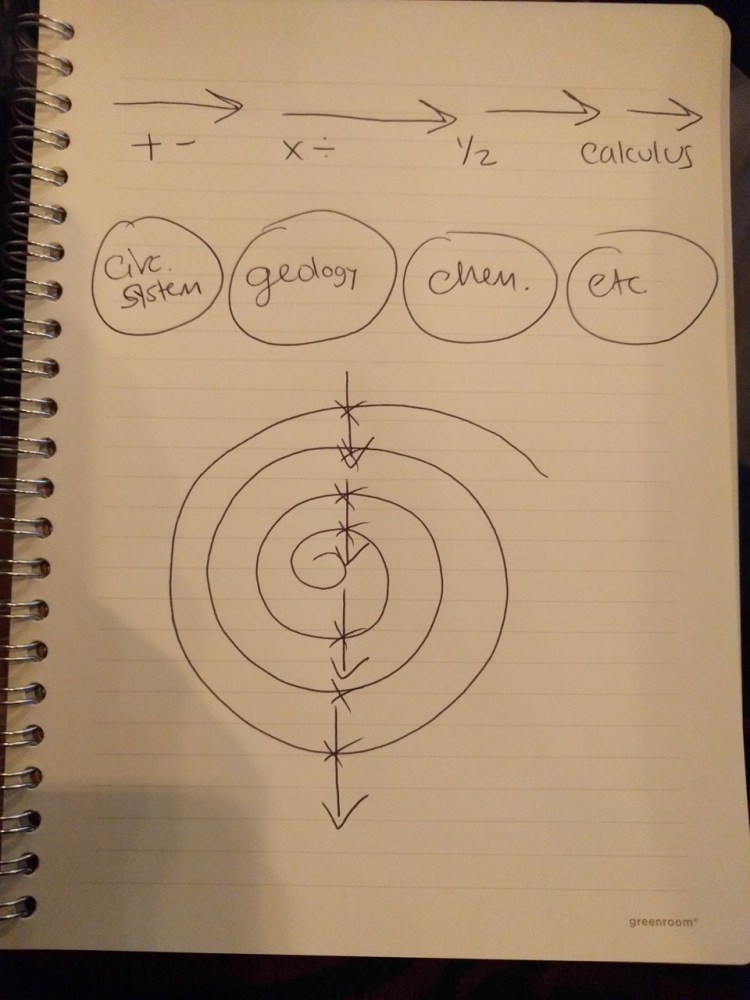 + -
x ÷
1/2
calculus
circ.
system
geology
chem.
etc
greenroom®